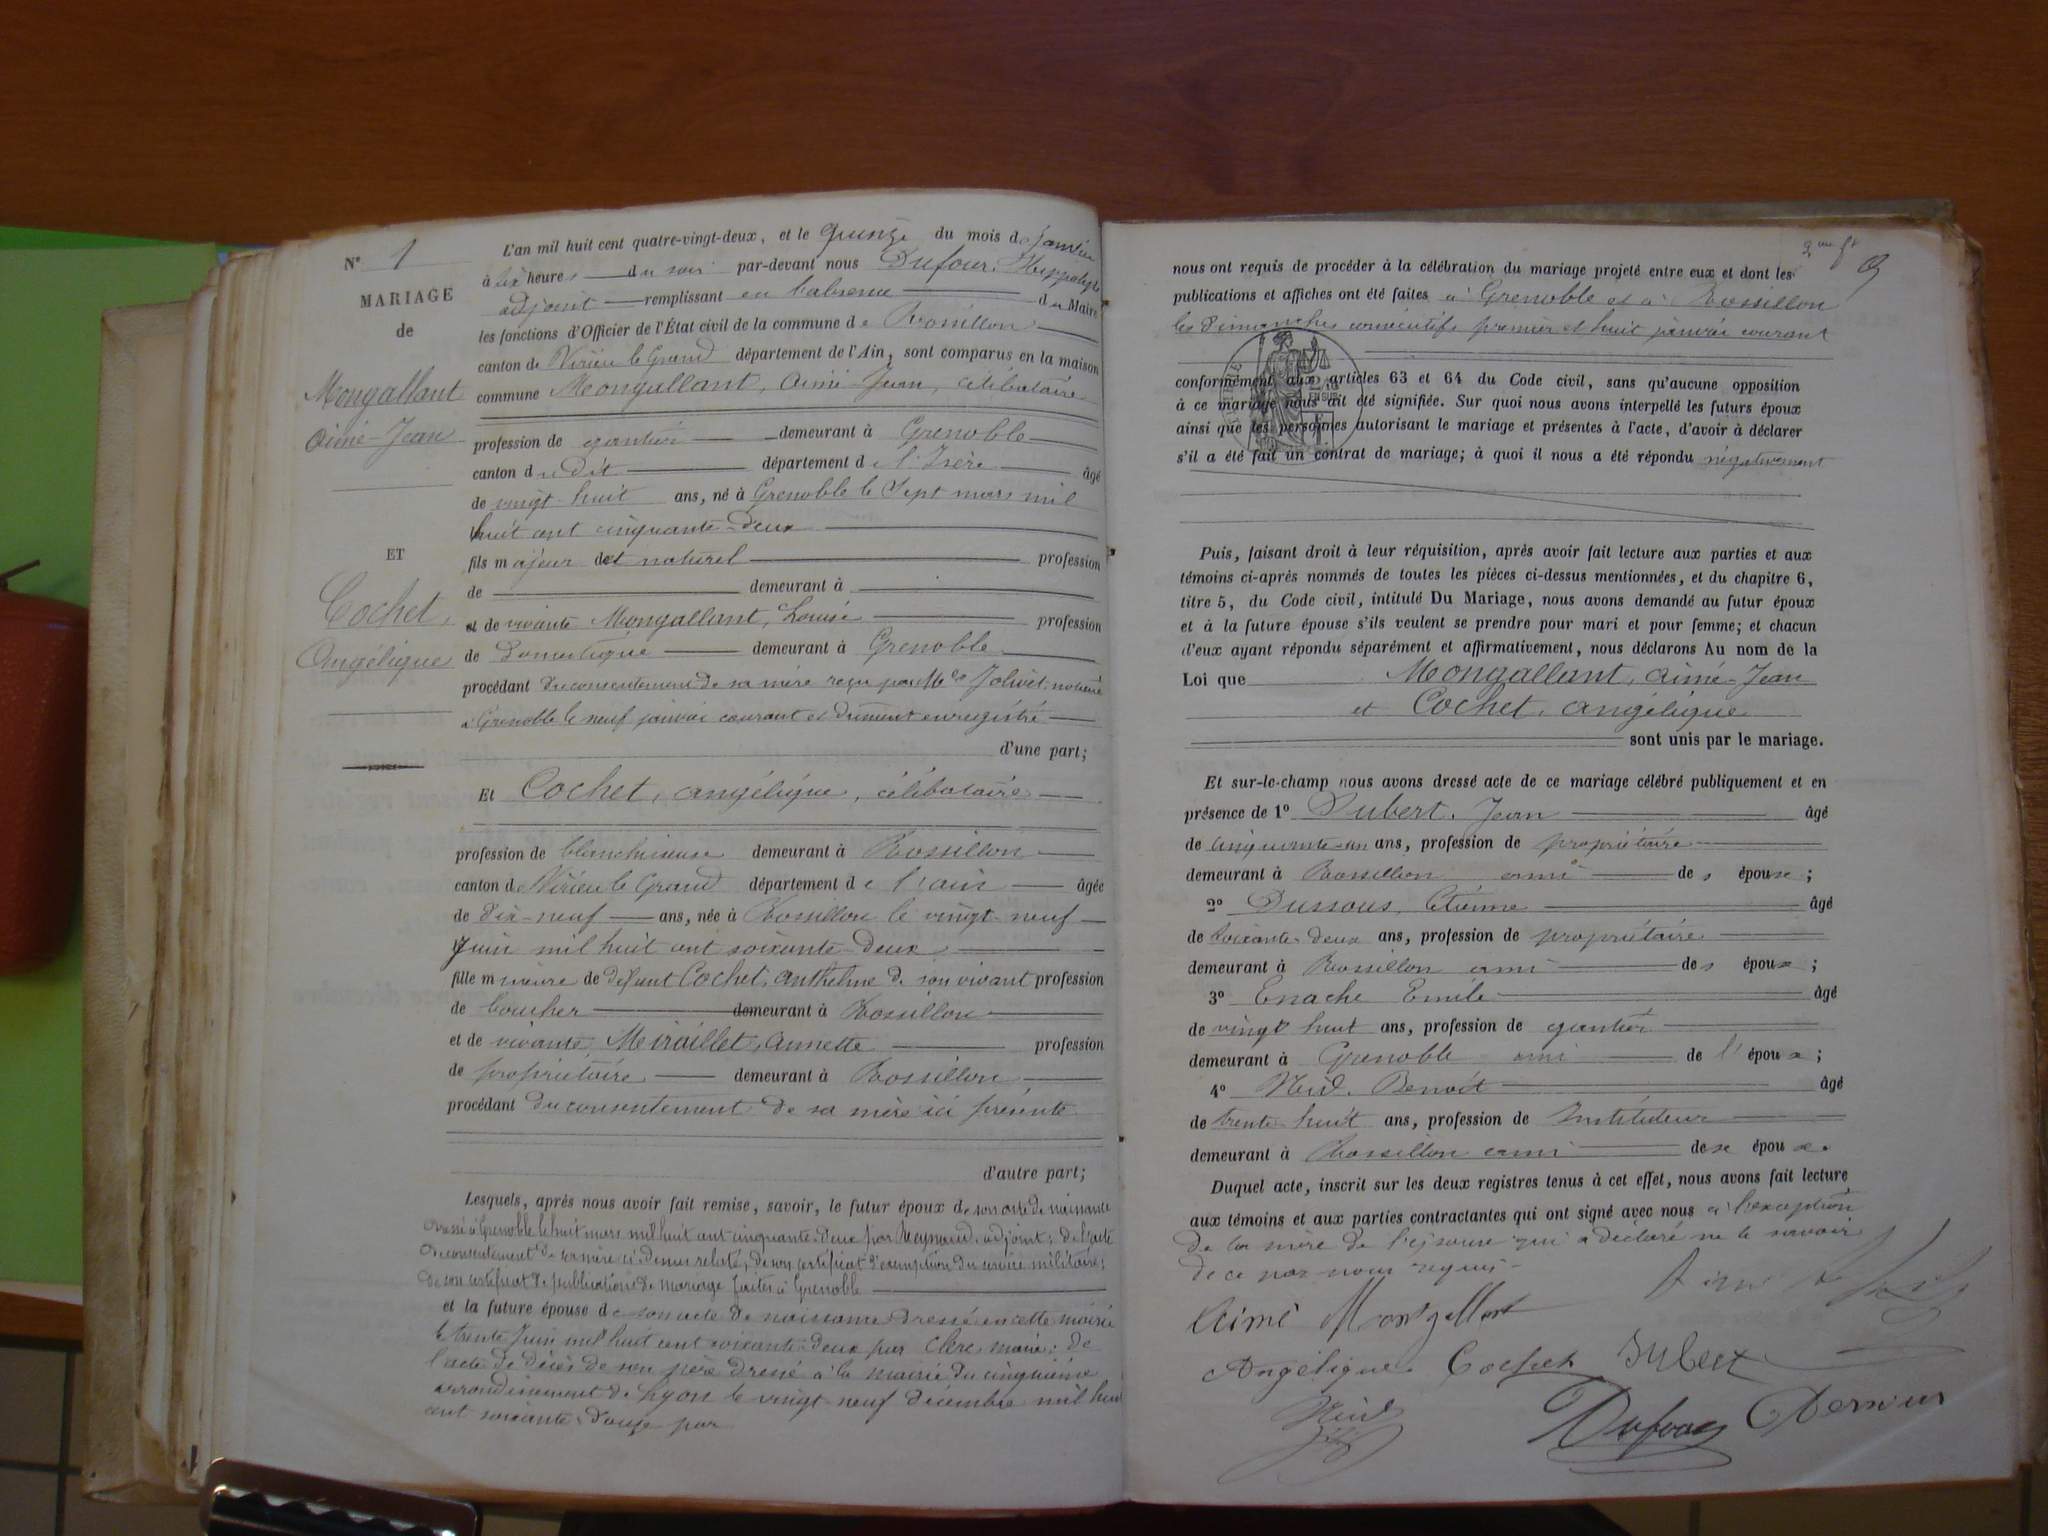 N° 1
MARIAGE
de
Mongallant
aimé-Jean
ET
Cochet,
Angélique
L'an mil huit cent quatre-vingt-deux, et le quinze du mois de janvier
à six heures du soir par-devant nous Dufour, Hippolyte
adjoint remplissant en l'absence du Maire
les fonctions d'Officier de l'État civil de la commune de Rossillon
canton de Virieu le Grand département de l'Ain, sont comparus en la maison
commune Mongallant, aimé-Jean, célibataire
profession de gantier demeurant à Grenoble
canton du dit département de l'Isère âgé
de vingt huit ans, né à Grenoble le sept mars mil
huit cent cinquante-deux
fils majeur et naturel profession
de demeurant à
et de vivante Mongallant, Louise profession
de Domestique demeurant à Grenoble
procédant du consentement de sa mère reçu par Me Jolivet notaire
à Grenoble le neuf janvier courant et dûment enregistré
d'une part;
Et Cochet, angélique, célibataire
profession de blanchisseuse demeurant à Rossillon
canton de Virieu le Grand département de l'ain âgée
de dix-neuf ans, née à Rossillon le vingt-neuf
Juin mil huit cent soixante-deux
fille mineure de défunt Cochet, anthelme de son vivant profession
de boucher demeurant à Rossillon
et de vivante Miraillet, annette profession
de propriétaire demeurant à Rossillon
procédant du consentement de sa mère ici présente
d'autre part;
Lesquels, après nous avoir fait remise, savoir, le futur époux de son acte de naissance
dressé à Grenoble le huit mars mil huit cent cinquante-deux par Reymond, adjoint; de l'acte
de consentement de sa mère ci-dessus relaté, de son certificat d'exemption du service militaire;
de son certificat de publications de mariage faites à Grenoble
et la future épouse de son acte de naissance dressé en cette mairie
le trente Juin mil huit cent soixante-deux par Clerc, maire; de
l'acte de décès de son père dressé à la mairie du cinquième
arrondissement de Lyon le vingt-neuf décembre mil huit
cent soixante-douze par
2me ft
nous ont requis de procéder à la célébration du mariage projeté entre eux et dont les
publications et affiches ont été faites à Grenoble et à Rossillon
les dimanches consécutifs premier et huit janvier courant
conformément aux articles 63 et 64 du Code civil, sans qu'aucune opposition
à ce mariage nous ait été signifiée. Sur quoi nous avons interpellé les futurs époux
ainsi que les personnes autorisant le mariage et présentes à l'acte, d'avoir à déclarer
s'il a été fait un contrat de mariage; à quoi il nous a été répondu négativement
Puis, faisant droit à leur réquisition, après avoir fait lecture aux parties et aux
témoins ci-après nommés de toutes les pièces ci-dessus mentionnées, et du chapitre 6,
titre 5, du Code civil, intitulé Du Mariage, nous avons demandé au futur époux
et à la future épouse s'ils veulent se prendre pour mari et pour femme; et chacun
d'eux ayant répondu séparément et affirmativement, nous déclarons Au nom de la
Loi que Mongallant, aimé-Jean
et Cochet, angélique
sont unis par le mariage.
Et sur-le-champ nous avons dressé acte de ce mariage célébré publiquement et en
présence de 1° Dubert, Jean âgé
de cinquante-un ans, profession de propriétaire
demeurant à Rossillon ami des époux;
2° Dussous, Etienne âgé
de soixante-deux ans, profession de propriétaire
demeurant à Rossillon ami des époux;
3° Enache Emile âgé
de vingt huit ans, profession de gantier
demeurant à Grenoble ami de l'époux;
4° Benoît âgé
de trente-huit ans, profession de Instituteur
demeurant à Rossillon ami des époux.
Duquel acte, inscrit sur les deux registres tenus à cet effet, nous avons fait lecture
aux témoins et aux parties contractantes qui ont signé avec nous à l'exception
de la mère de l'épouse qui a déclaré ne le savoir
de ce par nous requis
Aimé Mongallant
Angélique Cochet Dubert
Dufour